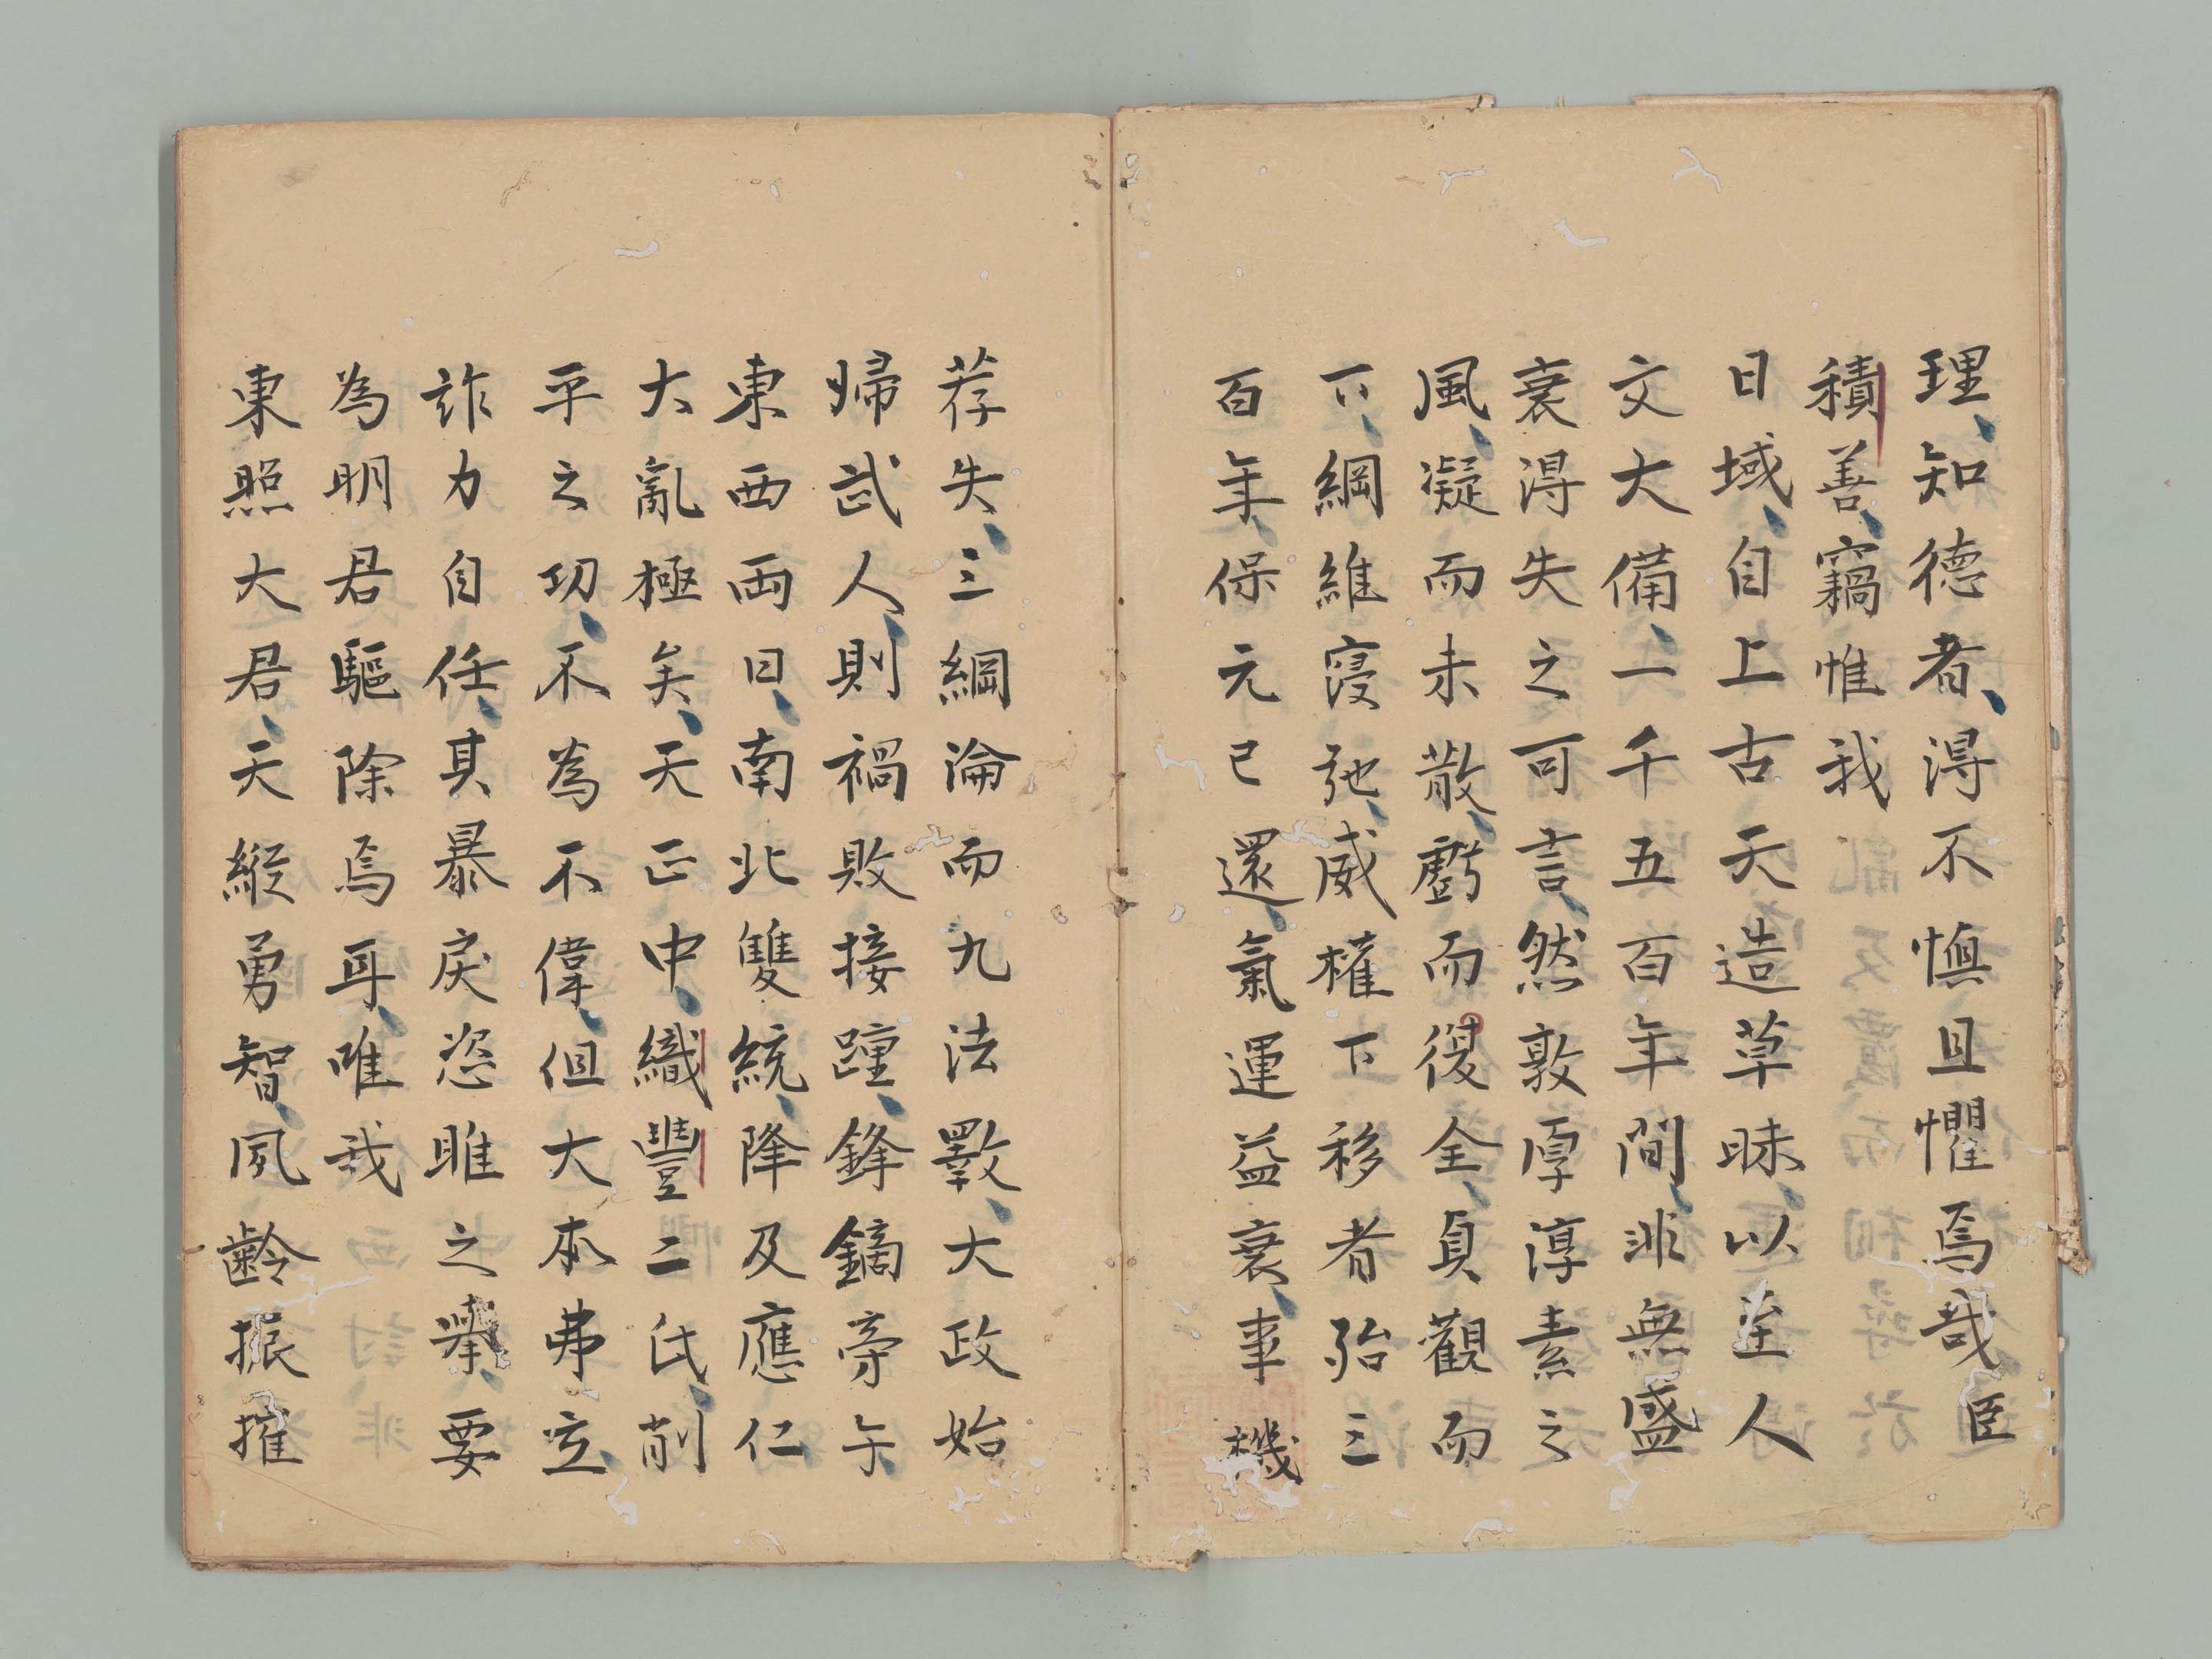 理、知德者、得不慎且懼焉哉臣
積善、竊惟我
日域、自上古天造草昧、以至人
文大備、一千五百年間、非無盛
衰得失之可言、然敦厚淳素之
風、凝而未散、虧而復全、貞觀而
下、綱維寖弛、威權下移者殆三
百年、保元已還、氣運益衰、事機
荐失、三綱淪而九法斁、大政始
歸武人、則禍敗接踵、鋒鏑旁午
東西両日、南北雙統、降及應仁
大亂極矣、天正中、織豐二氏、削
平之功、不為不偉、但大本弗立、
詐力自任、其暴戾恣睢之擧、要
為明君驅除焉耳、唯我
東照大君、天縱勇智、夙齡振摧